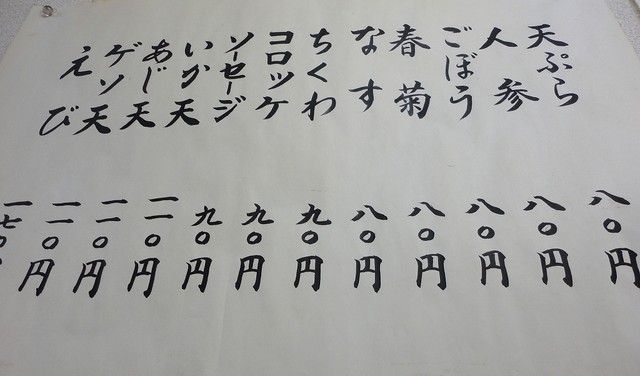 天ぷら 八〇円
人参 八〇円
ごぼう 八〇円
春菊 八〇円
なす 八〇円
ちくわ 九〇円
コロッケ 九〇円
ソーセージ 九〇円
いか天 一一〇円
あじ天 一一〇円
ゲソ天 一一〇円
えび 一七〇